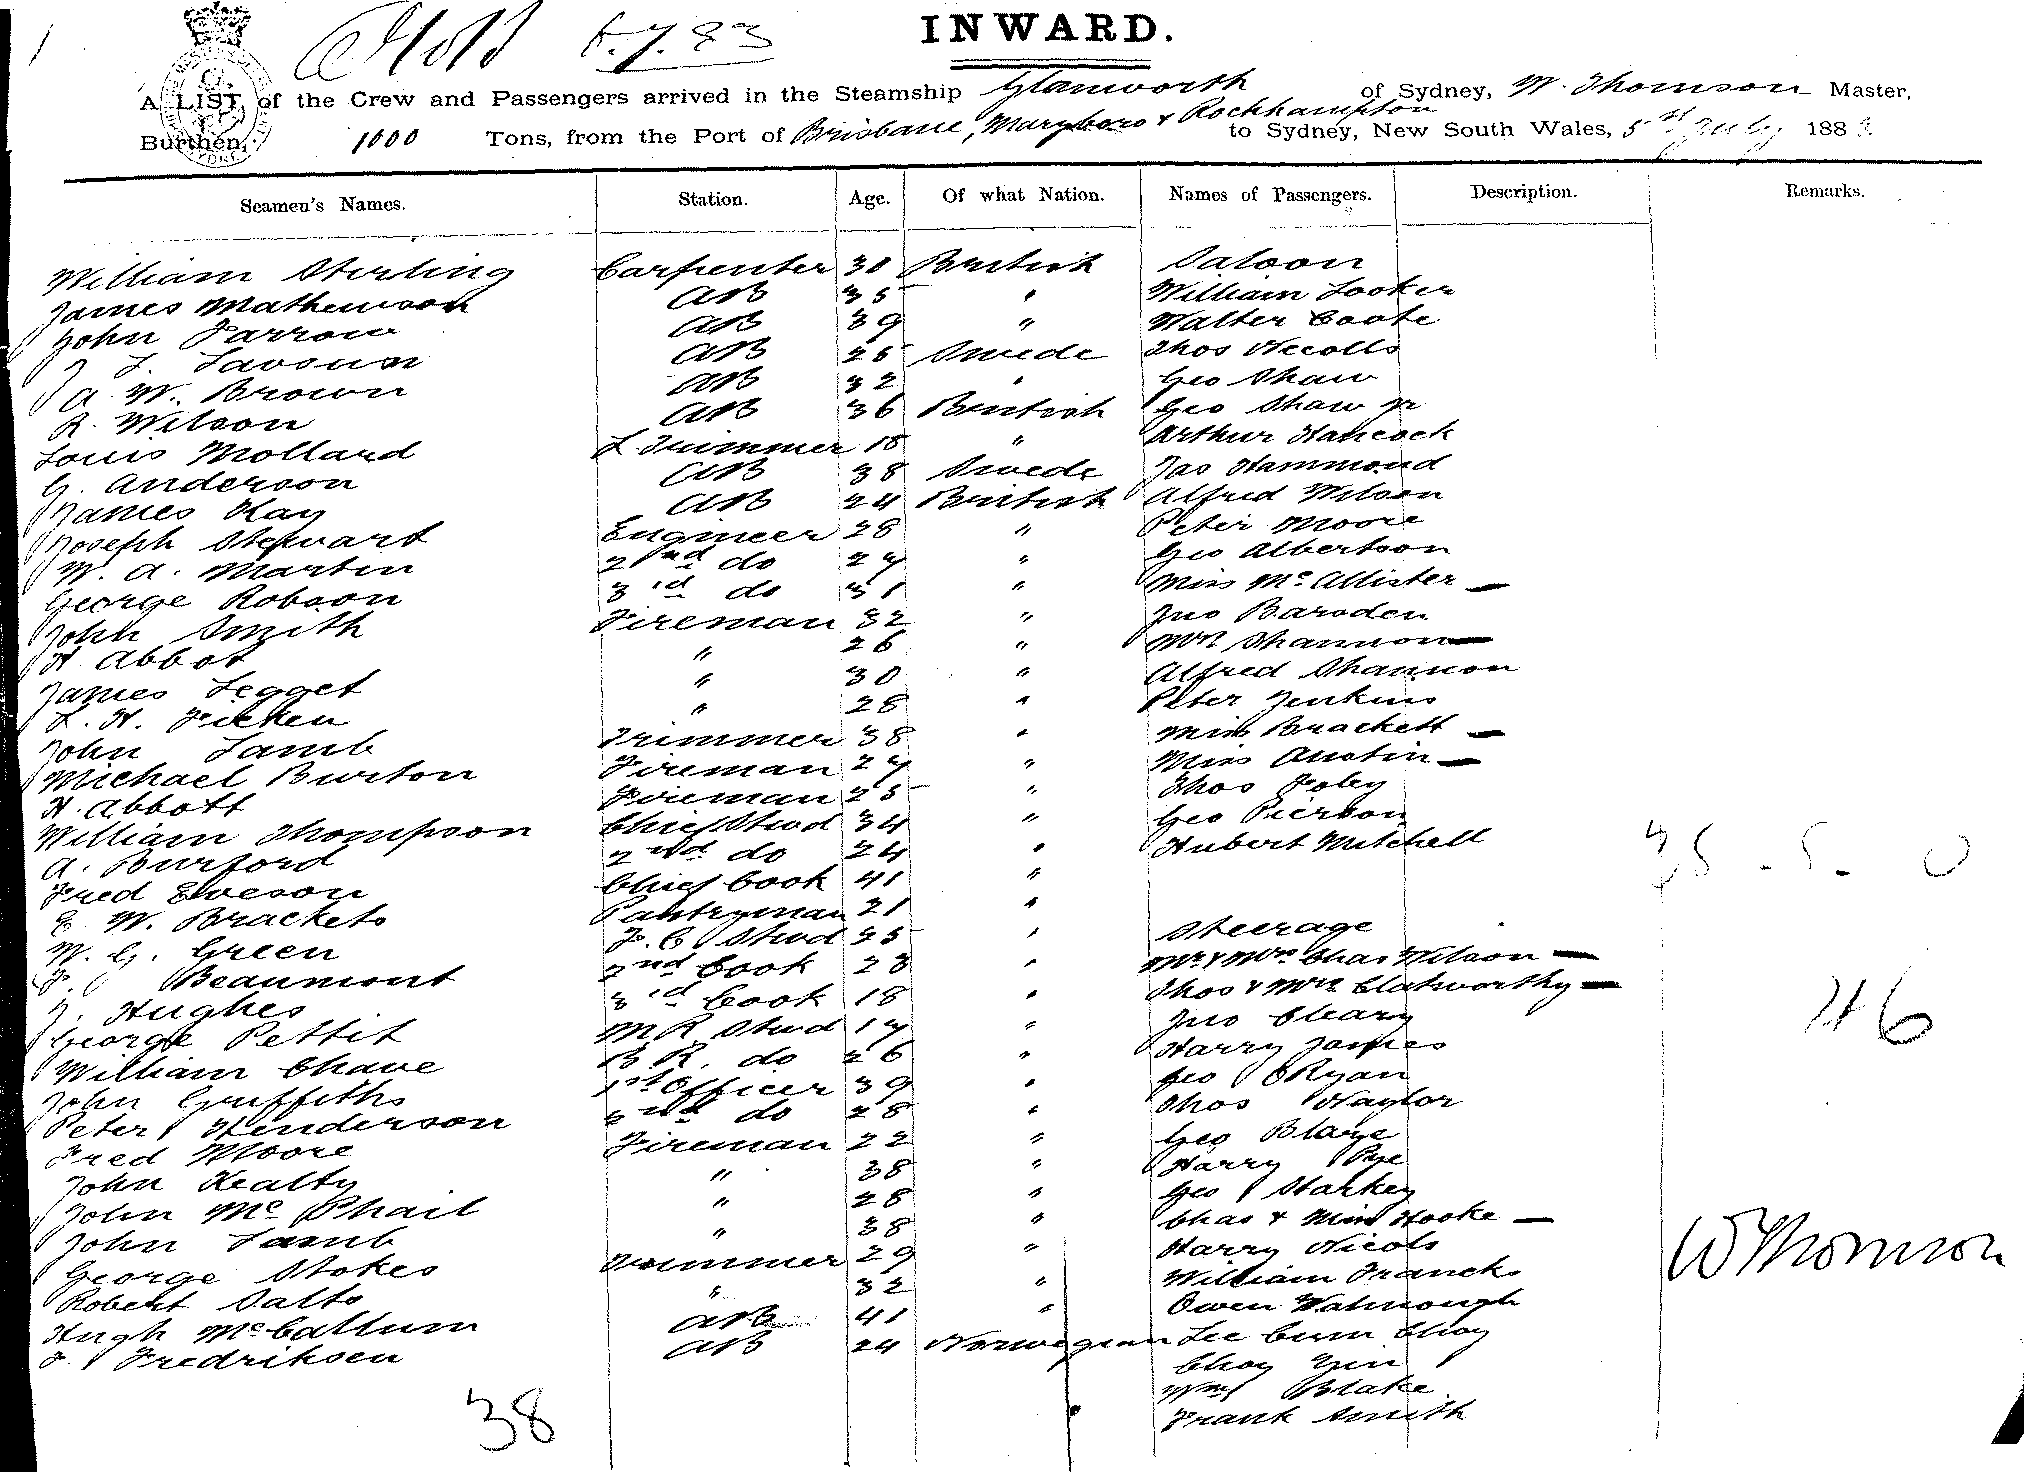 6.7.83
INWARD.
A LIST of the Crew and Passengers arrived in the Steamship Glanworth of Sydney, W. Thomson Master,
Burthen, 1000 Tons, from the Port of Brisbane, Maryboro & Rockhampton to Sydney, New South Wales, 5th July 1883
Seamen's Names. Station. Age. Of what Nation. Names of Passengers. Description. Remarks.
William Stirling Carpenter 30 British Saloon
James Mathewson AB 35 " William Looker
John Farrow AB 39 " Walter Coote
AB 25 Swede Thos Nicolls
A. W. Brown AB 32 " Geo Shaw
R. Wilson AB 36 British Geo Shaw jr
Louis Mollard L Trimmer 18 " Arthur Hancock
G. Anderson AB 38 Swede Jas Hammond
James Kay AB 24 British Alfred Wilson
Joseph Stewart Engineer 28 " Peter Moore
W. A. Martin 2nd do 27 " Geo Albertson
George Robson 3rd do 31 " Miss McAllister
John Smith Fireman 32 " Jno Barsden
H Abbot " 26 " Mrs Shannon
James Legget " 30 " Alfred Shannon
" 28 " Peter Jenkins
John Lamb Trimmer 38 " Miss Brackett
Michael Burton Fireman 27 " Miss Austin
H. Abbott Fireman 25 " Thos Foley
William Thompson Chief Stwd 34 " Geo Pierson
A. Burford 2nd do 24 " Hubert Mitchell
Fred Eveson Chief Cook 41 "
E. W. Brackets Pantryman 21 "
W. G. Green F. C. Stwd 25 " Steerage
Beaumont 2nd Cook 23 " Mr & Mrs Chas Wilson
J. Hughes 3rd Cook 18 " Thos & Mrs Clatworthy
George Pettit M R Stwd 17 " Jno Cleary
William Chave B R. do 26 " Harry James
John Griffiths 1st Officer 39 " Geo O'Ryan
Peter Henderson 2nd do 28 " Thos Naylor
Fred Moore Fireman 22 " Geo Blaye
John Kealty " 38 " Harry Pye
John McPhail " 28 " Geo Starkey
John Lamb " 38 " Chas & Miss Hooke
George Stokes Trimmer 29 " Harry Nicols
Robert Salts " 32 " William Francks
Hugh McCallum AB 41 " Owen Watmough
J. Fredriksen AB 24 Norwegian Lee Cum Choy
Choy Yin
Wm Blake
Frank Smith
38
35 - 5 - 0
46
W Thomson